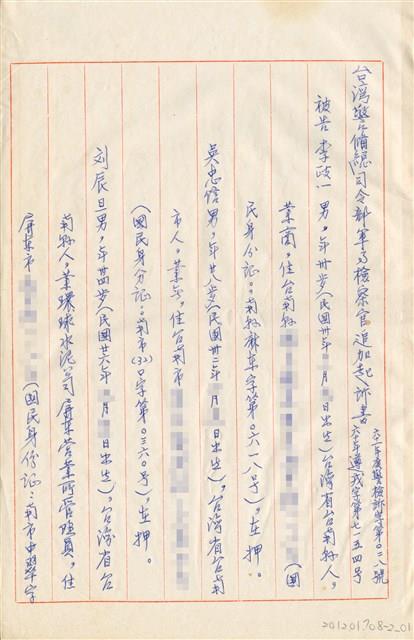 台灣警備總司令部軍事檢察官追加起訴書
六一年度警檢訴字第〇二八號
六十年遵戎字第七一五四號
被告 李政一 男，年卅步（民國卅年 月 日出生）台灣省台南縣人，
業商，住台南縣 （國
民身份証：南縣麻東字第〇六一八号），在押。
吳忠信 男，年廿八步（民國卅二年 月 日出生），台灣省台南
市人，業無，住台南市
（國民身分証：南市(32)〇字第〇三六〇号），在押。
刘辰旦 男，年卅四步（民國廿六年 月 日出生），台灣省台
南縣人，業環球水泥公司屏東營業所管理員，住
屏東市 （國民身份証：南市中翠字
201201708-2_01